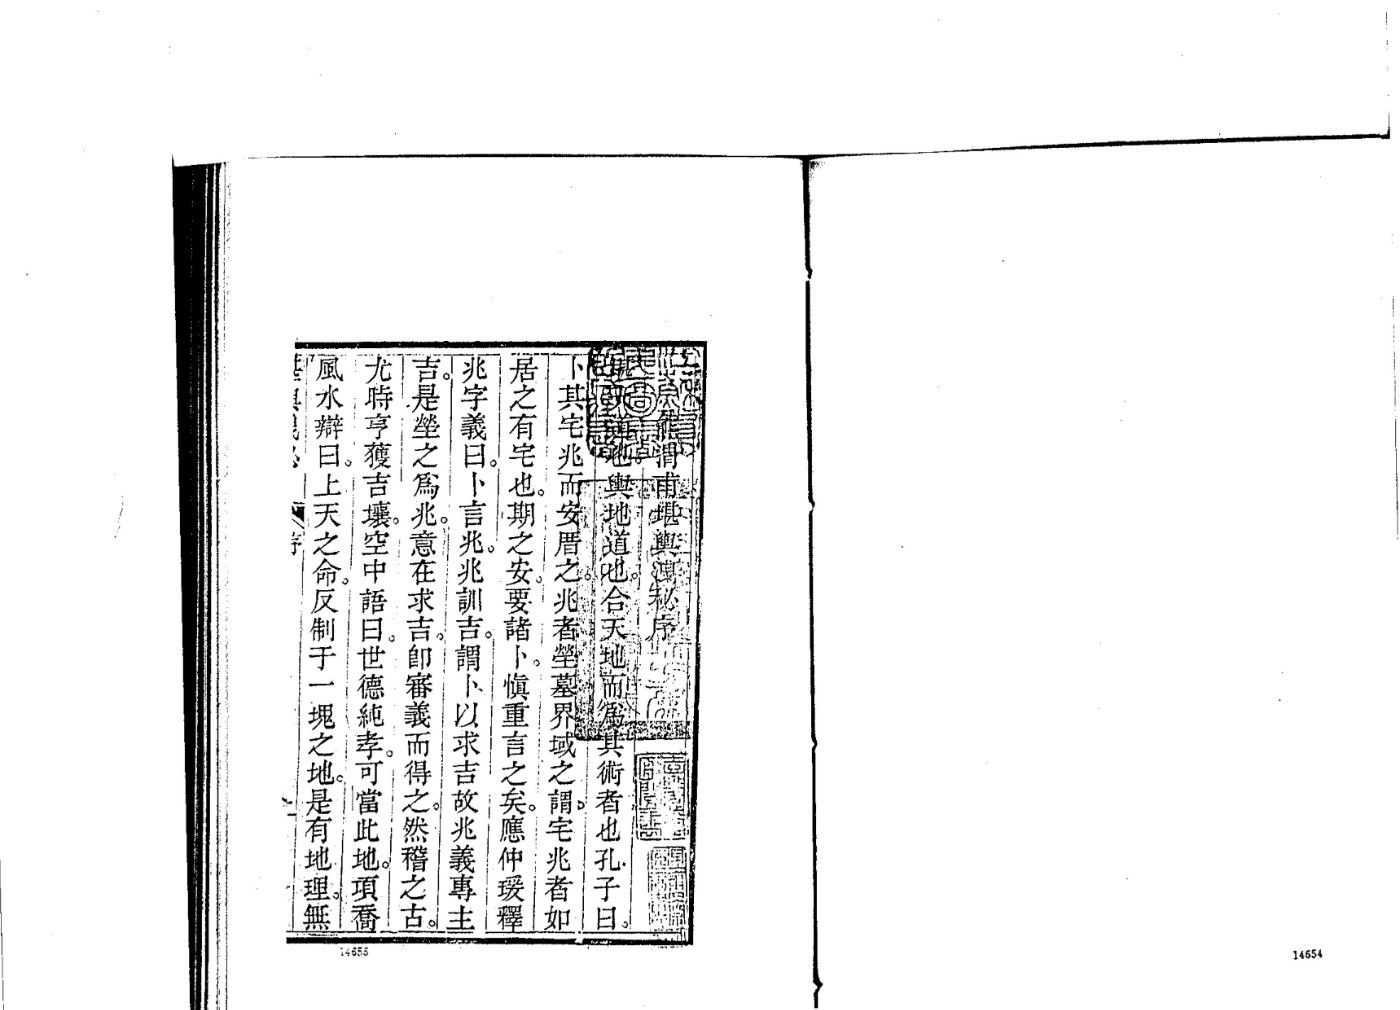 熊渭甫堪輿洩秘序
堪天道也輿地道也合天地而爲其術者也孔子曰。
卜其宅兆而安厝之。兆者塋墓界域之謂。宅兆者如
居之有宅也。期之安。要諸卜。愼重言之矣。應仲瑗釋
兆字義曰。卜言兆。兆訓吉。謂卜以求吉故兆義專主
吉。是塋之爲兆。意在求吉。卽審義而得之。然稽之古。
尤時亨獲吉壤。空中語曰。世德純孝。可當此地。項喬
風水辯曰。上天之命。反制于一塊之地。是有地理。無
序
14655
14654